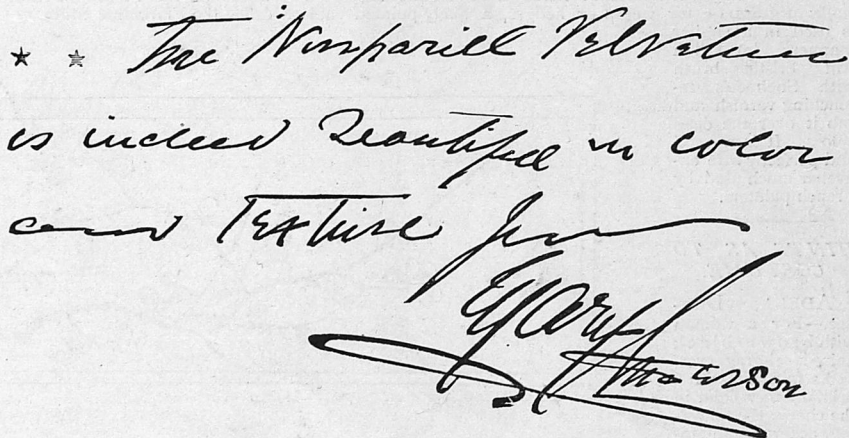 * * The Nonpariell Velveteen
is indeed Beautiful in color
and Texture
Mary Anderson